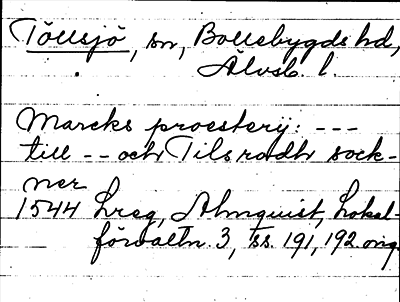 Töllsjö, sn, Bollebygds hd,
Älvsb. l.
Marcks proesterij: ---
till -- och Tilsradh sock-
ner
1544 Lreg, Almquist, Lokal-
förvaltn. 3, ss. 191, 192 orig.